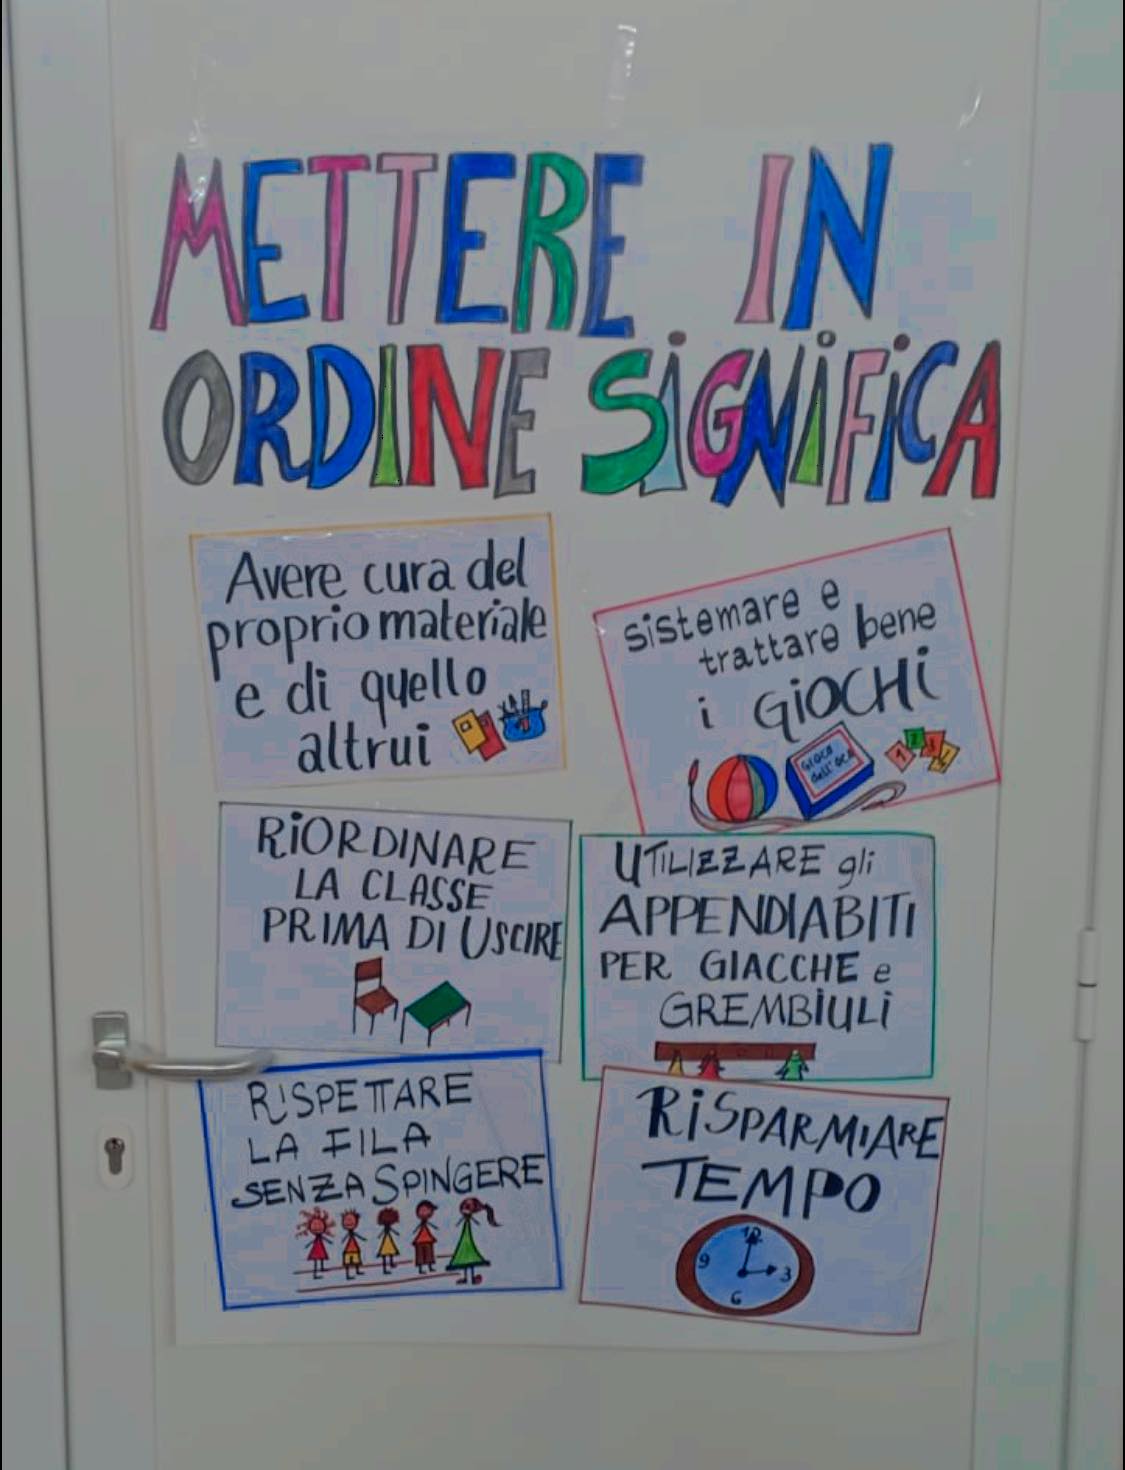 METTERE IN
ORDINE SiGNiFiCA
Avere cura del
proprio materiale
e di quello
altrui
sistemare e
trattare bene
i GiOCHi
GIOCO
dell'OCA
1 2 3
RiORDINARE
LA CLASSE
PRIMA DI USCIRE
UTILIZZARE gli
APPENDIABITI
PER GIACCHE e
GREMBiULi
RISPETTARE
LA FILA
SENZA SPINGERE
RiSPARMIARE
TEMPO
12
9 3
6